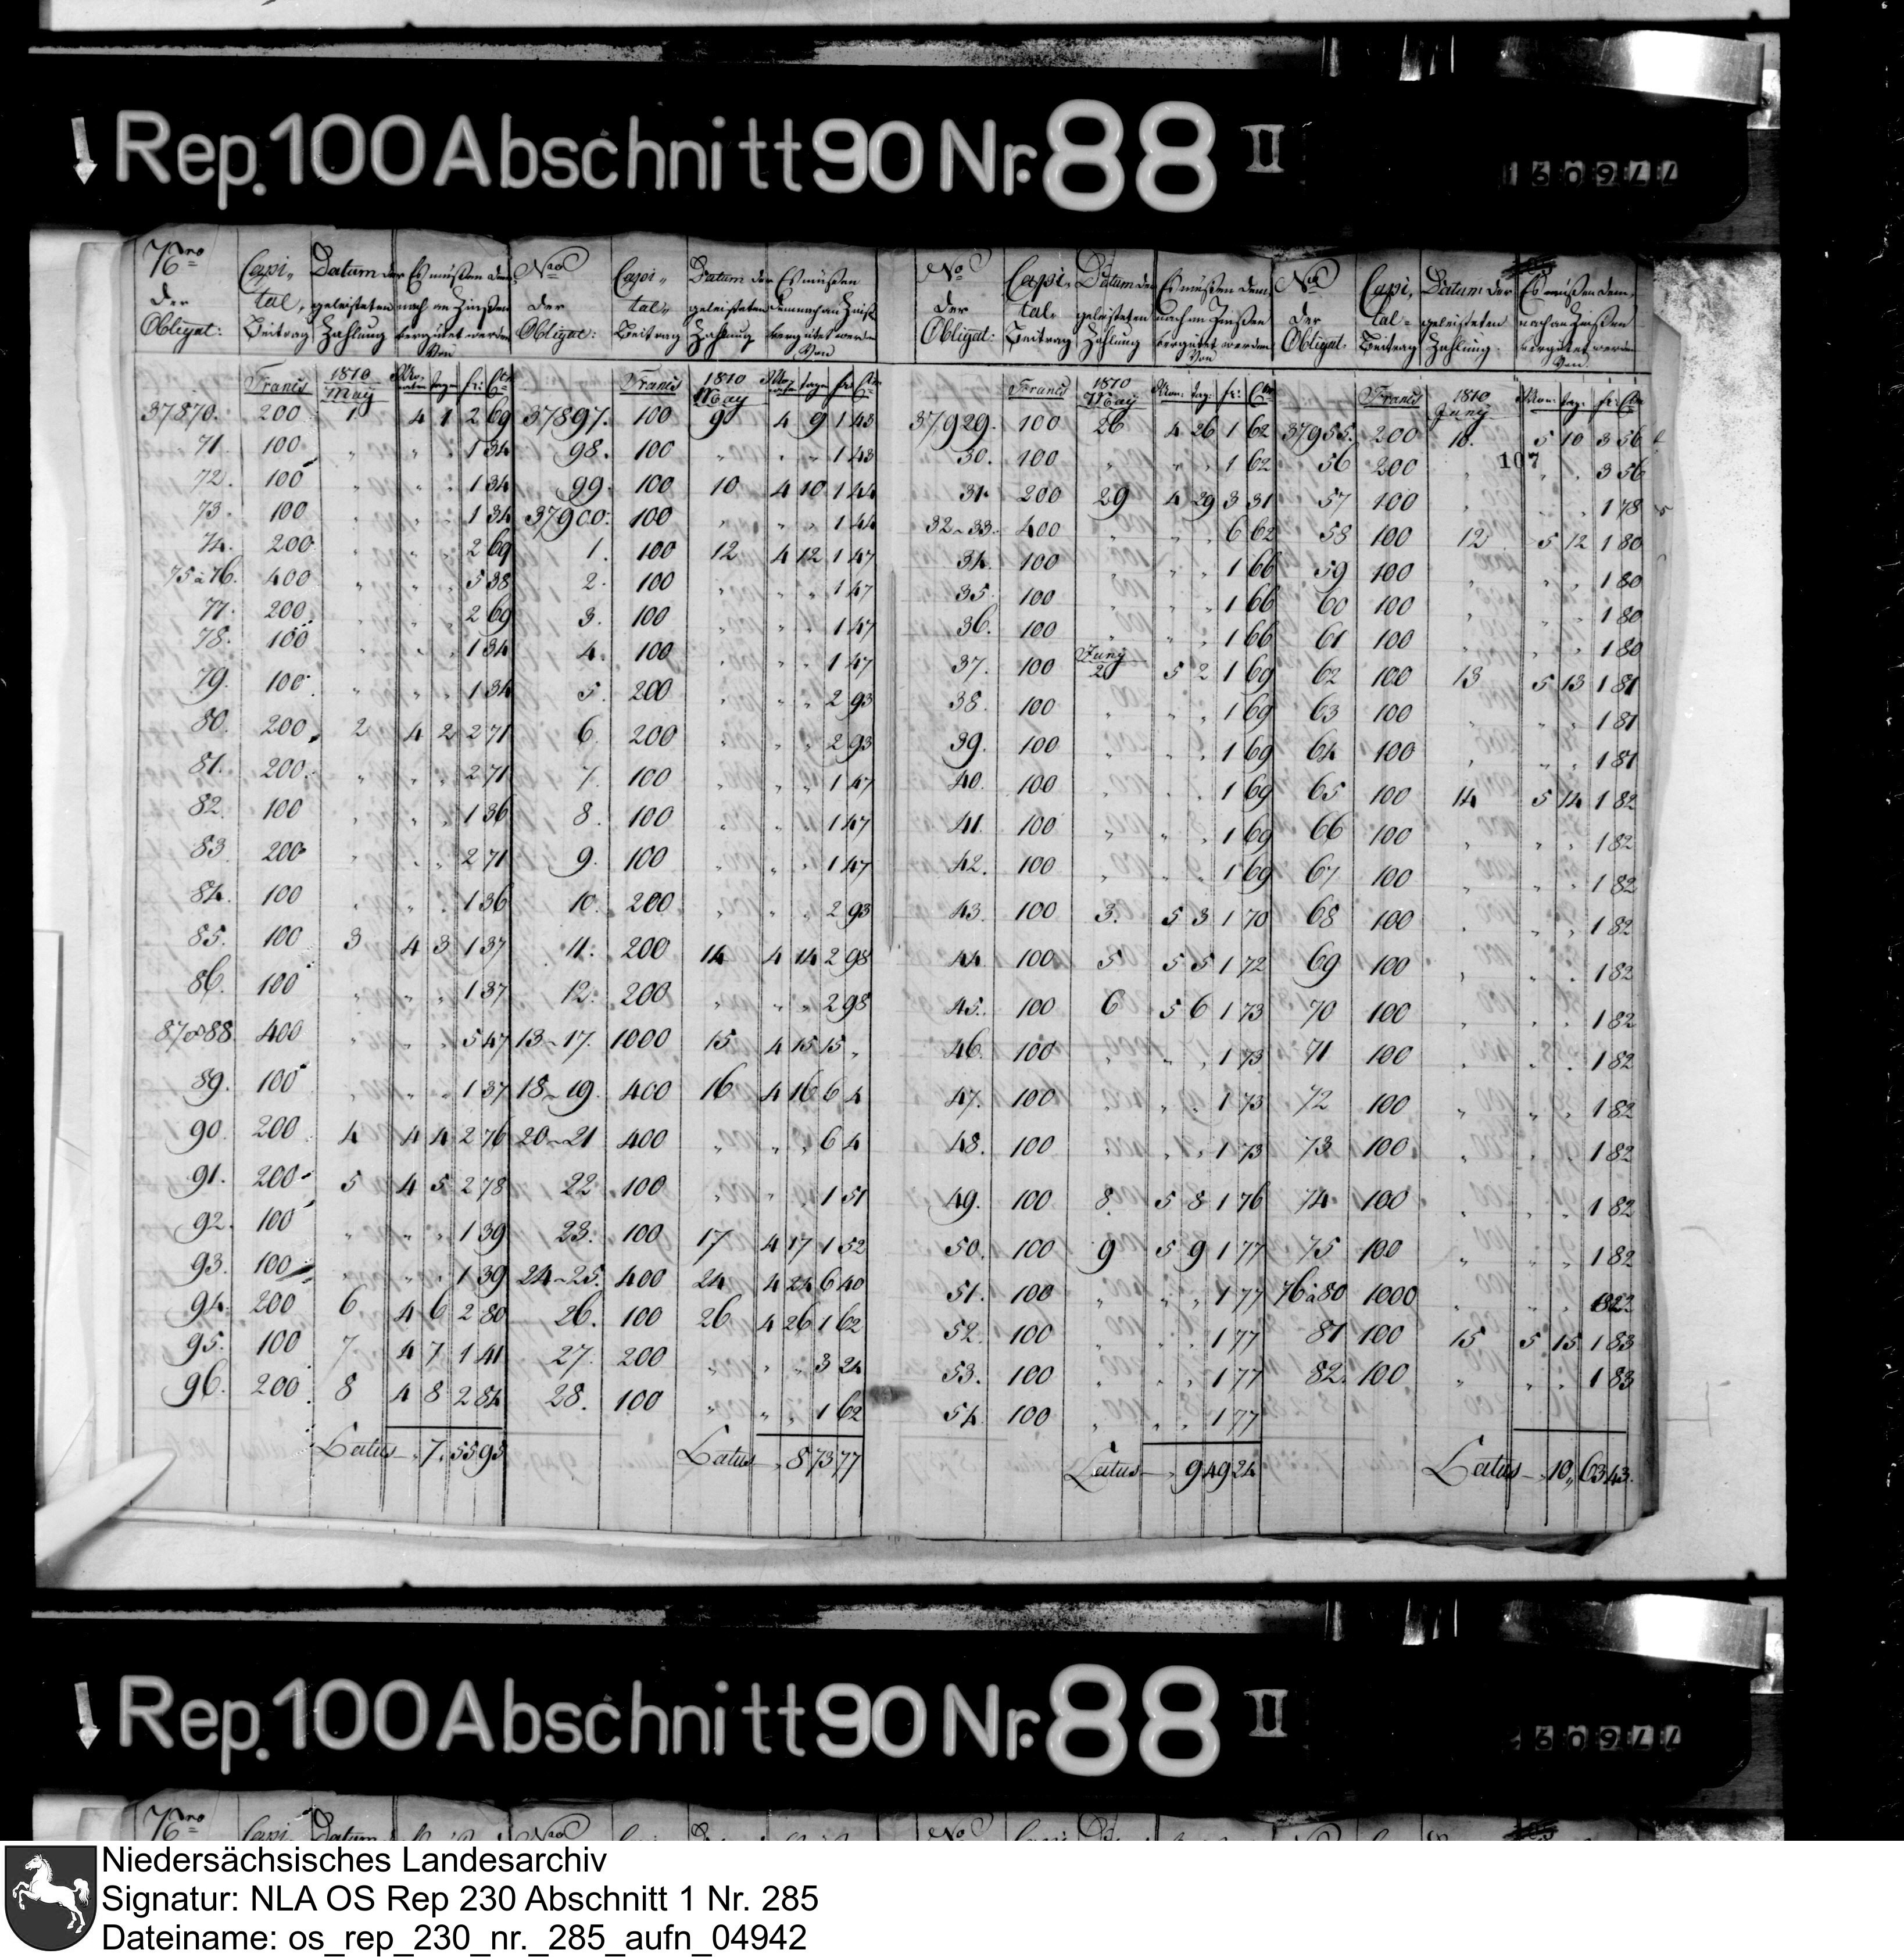 Rep. 100 Abschnitt 90 Nr. 88 II
160944
Nro der Obligat: Capital, Beitrag Datum der geleisteten Zahlung Es müßen demnach an Zinßen vergütet werden Von
Francs 1810 May Mo: tage fr: Cts
37870. 200 1 4 1 2 69
71 100 " " " 1 34
72. 100 " " " 1 34
73. 100 " " " 1 34
74. 200 " " " 2 69
75 à 76. 400 " " " 5 38
77. 200 " " " 2 69
78. 100 " " " 1 34
79. 100 " " " 1 34
80. 200 2 4 2 2 71
81. 200 " " " 2 71
82. 100 " " " 1 36
83 200 " " " 2 71
84. 100 " " " 1 36
85. 100 3 4 3 1 37
86. 100 " " " 1 37
87 & 88 400 " " " 5 47
89. 100 " " " 1 37
90. 200 4 4 4 2 76
91. 200 5 4 5 2 78
92. 100 " " " 1 39
93. 100 " " " 1 39
94. 200 6 4 6 2 80
95. 100 7. 4 7 1 41
96. 200 8 4 8 2 84
Latus 7. 55 93
Nro der Obligat: Capital, Beitrag Datum der geleisteten Zahlung Es müßen demnach an Zinß vergütet werden Von
Francs 1810 May Mo: tage fr: Cts
37897. 100 9 4 9 1 43
98. 100 " " " 1 43
99. 100 10 4 10 1 44
37900. 100 " " " 1 44
1. 100 12 4 12 1 47
2. 100 " " " 1 47
3. 100 " " " 1 47
4. 100 " " " 1 47
5. 200 " " " 2 93
6. 200 " " " 2 93
7. 100 " " " 1 47
8. 100 " " " 1 47
9. 100 " " " 1 47
10. 200 " " " 2 93
11. 200 14 4 14 2 98
12. 200 " " " 2 98
13-17. 1000 15 4 15 15 "
18-19. 400 16 4 16 6 4
20-21 400 " " " 6 4
22 100 " " " 1 51
23. 100 17 4 17 1 52
24-25. 400 24 4 24 6 40
26. 100 26 4 26 1 62
27. 200 " " " 3 24
28. 100 " " " 1 62
Latus 8 73 77
No der Obligat: Capital, Beitrag Datum der geleisteten Zahlung Es müßen demnach an Zinßen vergütet werden Von
Francs 1810 May Mon: tag: fr: Cts
37929. 100 26 4 26 1 62
30. 100 " " " 1 62
31. 200 29 4 29 3 31
32-33. 400 " " " 6 62
34. 100 " " " 1 66
35. 100 " " " 1 66
36. 100 " " " 1 66
37. 100 Juny 2 5 2 1 69
38. 100 " " " 1 69
39. 100 " " " 1 69
40. 100 " " " 1 69
41. 100 " " " 1 69
42. 100 " " " 1 69
43. 100 3. 5 3 1 70
44. 100 5 5 5 1 72
45. 100 6 5 6 1 73
46. 100 " " " 1 73
47. 100 " " " 1 73
48. 100 " " " 1 73
49. 100 8. 5 8 1 76
50. 100 9 5 9 1 77
51. 100 " " " 1 77
52. 100 " " " 1 77
53. 100 " " " 1 77
54. 100 " " " 1 77
Latus 9 49 24
No der Obligat: Capital- Beitrag Datum der geleisteten Zahlung Es müßen demnach an Zinßen vergütet werden Von
Francs 1810 Juny Mon: tag: fr: Cts
37955. 200 10. 5 10 3 56
107
56 200 " " " 3 56
57 100 " " " 1 78
58 100 12 5 12 1 80
59 100 " " " 1 80
60 100 " " " 1 80
61 100 " " " 1 80
62 100 13 5 13 1 81
63 100 " " " 1 81
64 100 " " " 1 81
65 100 14 5 14 1 82
66 100 " " " 1 82
67 100 " " " 1 82
68 100 " " " 1 82
69 100 " " " 1 82
70 100 " " " 1 82
71 100 " " " 1 82
72 100 " " " 1 82
73 100 " " " 1 82
74 100 " " " 1 82
75 100 " " " 1 82
76 à 80 1000 " " "
81 100 15 5 15 1 83
82. 100 " " " 1 83
Latus 10,, 63 43.
Rep. 100 Abschnitt 90 Nr. 88 II
60944
Nro Capi Datum
Niedersächsisches Landesarchiv
Signatur: NLA OS Rep 230 Abschnitt 1 Nr. 285
Dateiname: os_rep_230_nr._285_aufn_04942